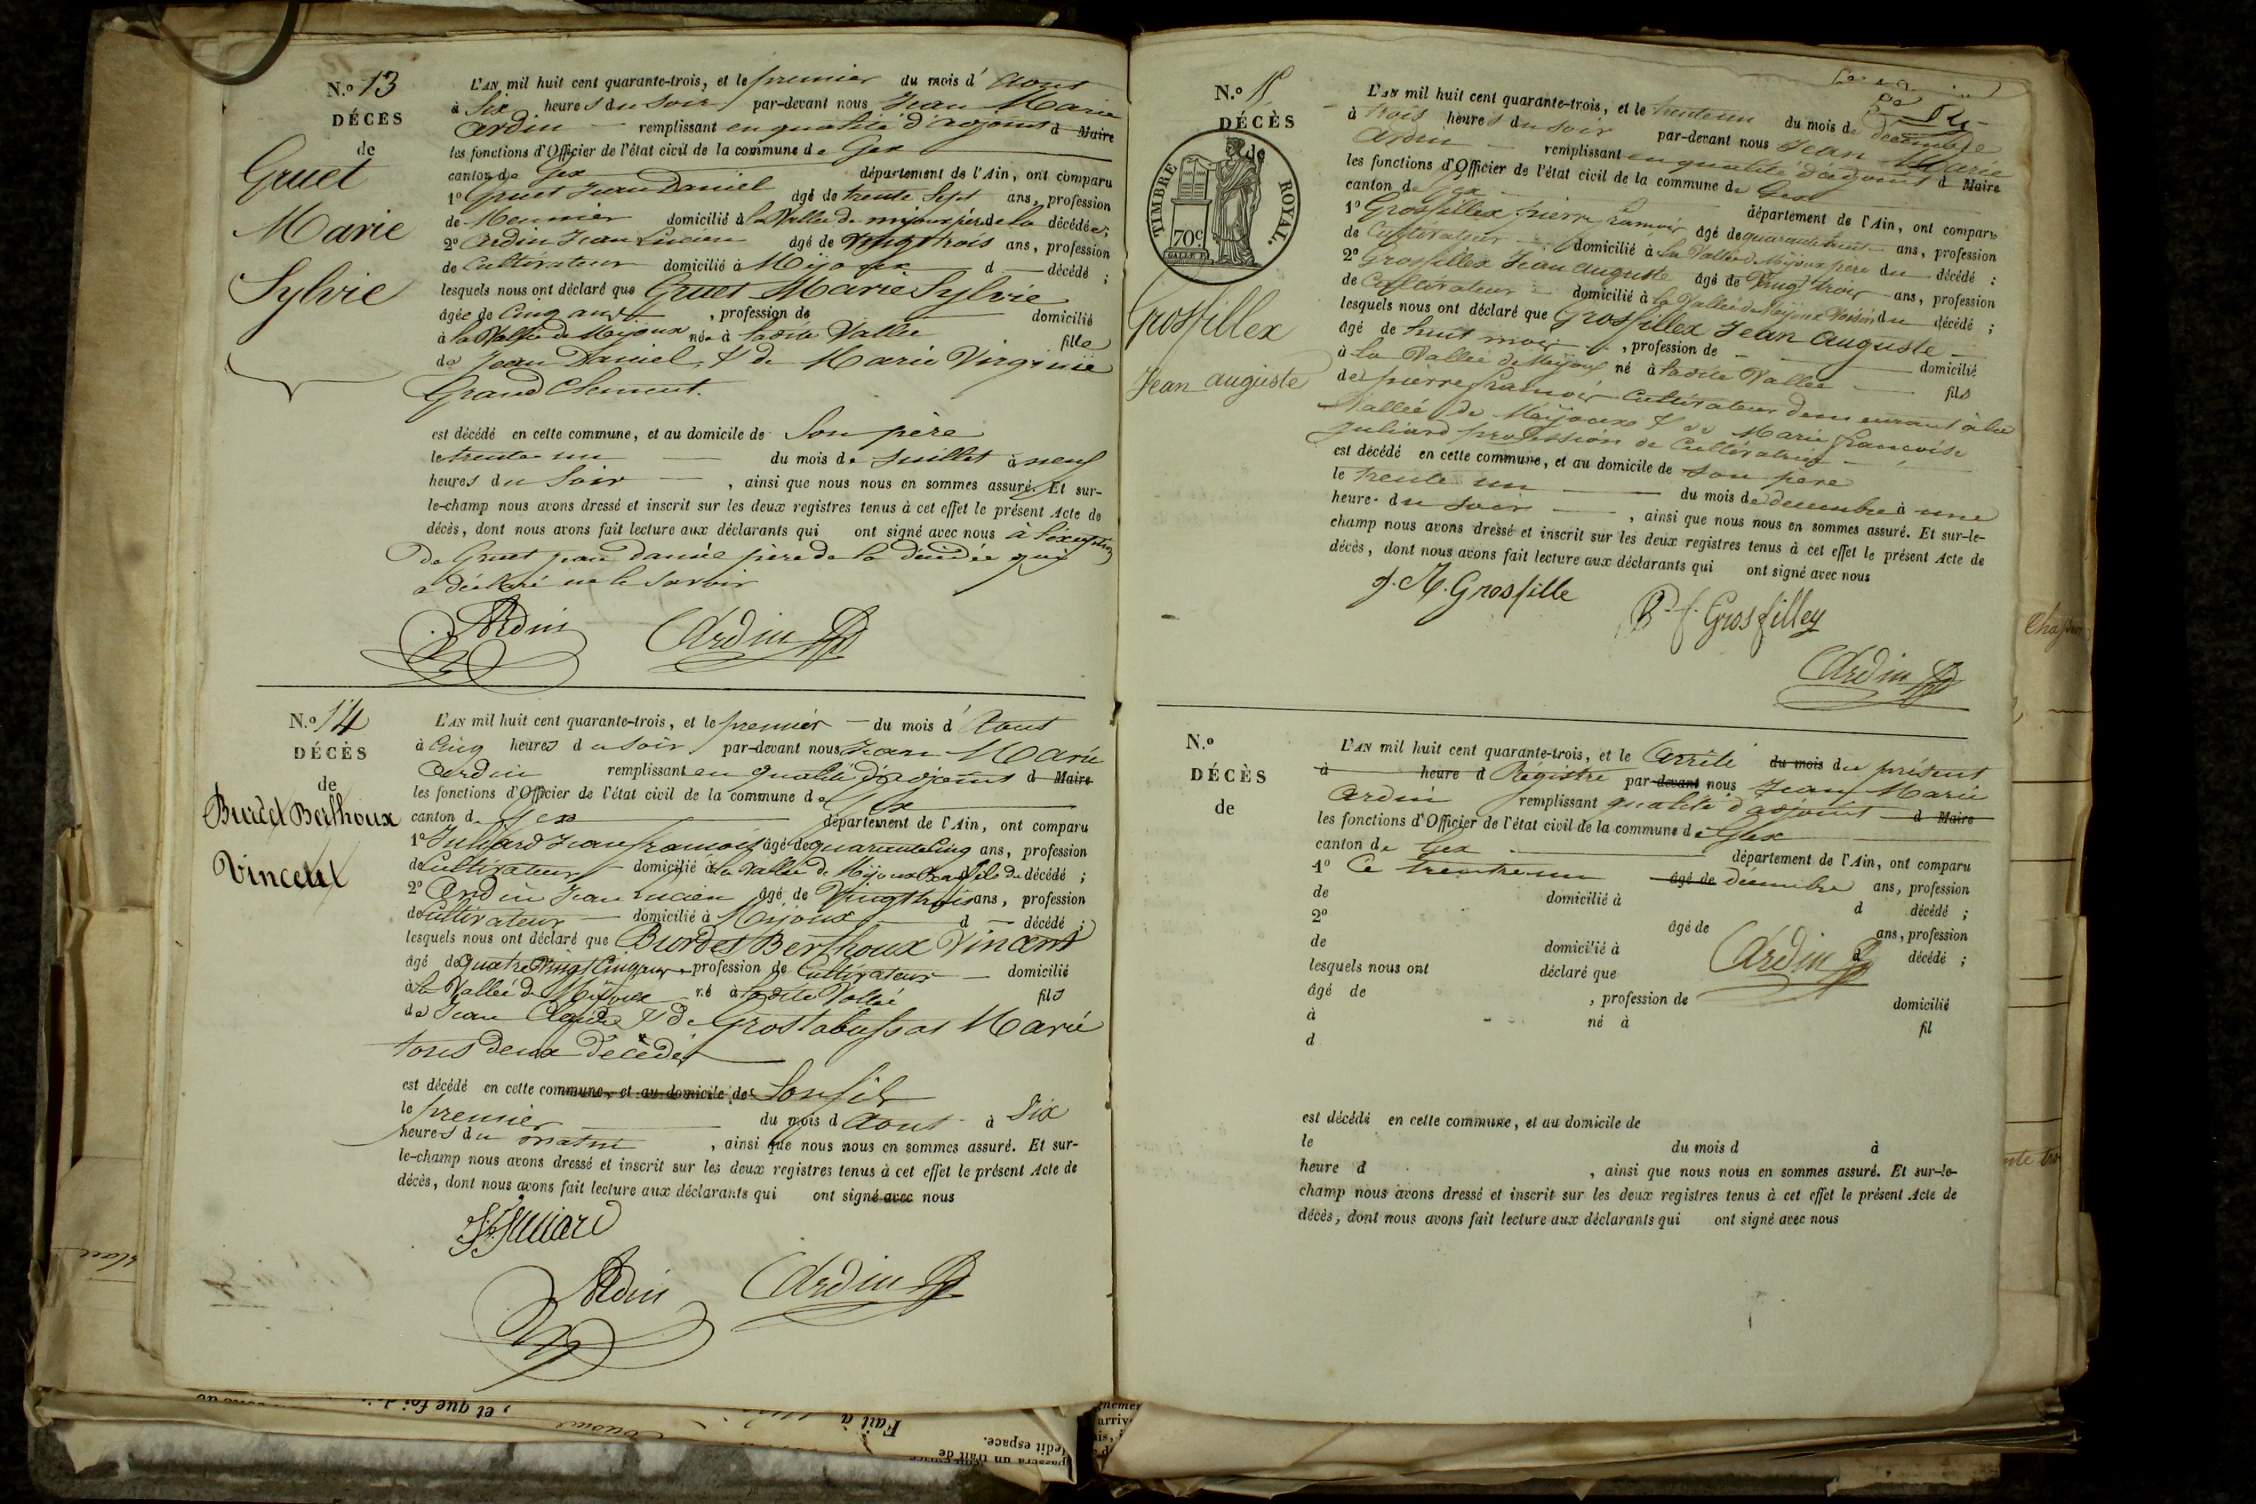 N.º 13
DÉCÈS
de
Gruet
Marie
Sylvie
L'AN mil huit cent quarante-trois, et le premier du mois d' Aout
à Six heures du Soir par-devant nous Jean Marie
Ardin remplissant en qualité d'adjoint d Maire
les fonctions d'Officier de l'état civil de la commune de Gex
canton de Gex département de l'Ain, ont comparu
1º Gruet Jean Daniel âgé de trente Sept ans, profession
de Meunier domicilié à la Vallée de mijoux père de la décédée;
2º Ardin Jean Lucien âgé de Vingt trois ans, profession
de Cultivateur domicilié à Mijoux d décédé ;
lesquels nous ont déclaré que Gruet Marie Sylvie
âgée de Cinq ans , profession de domicilié
à la Vallée de Mijoux née à ladite Vallée fille
de Jean Daniel, & de Marie Virginie
Grand Clement.
est décédé en cette commune, et au domicile de Son père
le trente un du mois de Juillet à neuf
heures du Soir , ainsi que nous nous en sommes assuré. Et sur-
le-champ nous avons dressé et inscrit sur les deux registres tenus à cet effet le présent Acte de
décès, dont nous avons fait lecture aux déclarants qui ont signé avec nous à l'exception
de Gruet jean daniel père de la décédée qui
a déclaré ne le Savoir
Ardin Ardin
N.º 14
DÉCÈS
de
Burdet Berthoux
Vincent
L'AN mil huit cent quarante-trois, et le premier du mois d' Aout
à Cinq heures du Soir par-devant nous Jean Marie
Ardin remplissant en qualité d'adjoint d Maire
les fonctions d'Officier de l'état civil de la commune de Gex
canton de Gex département de l'Ain, ont comparu
1º Julliard Jean françois âgé de quarante Cinq ans, profession
de Cultivateur domicilié à la Vallée de Mijoux Beau fils du décédé ;
2º Ardin Jean Lucien âgé de Vingt trois ans, profession
de Cultivateur domicilié à Mijoux d décédé ;
lesquels nous ont déclaré que Burdet Berthoux Vincent
âgé de Quatre Vingt Cinq ans profession de Cultivateur domicilié
à la Vallée de Mijoux né à ladite Vallée fils
de Jean Claude & de Grostabussiat Marie
tous deux décédés
est décédé en cette commune, et au domicile de Son fils
le premier du mois d Aout à Six
heures du matin , ainsi que nous nous en sommes assuré. Et sur-
le-champ nous avons dressé et inscrit sur les deux registres tenus à cet effet le présent Acte de
décès, dont nous avons fait lecture aux déclarants qui ont signé avec nous
Julliard
Ardin Ardin
N.º 15
DÉCÈS
de
TIMBRE ROYAL.
70c
Grosfillex
Jean auguste
L'AN mil huit cent quarante-trois, et le trente un du mois de decembre
à trois heures du soir par-devant nous Jean Marie
Ardin remplissant en qualité d'adjoint d Maire
les fonctions d'Officier de l'état civil de la commune de Gex
canton de Gex département de l'Ain, ont comparu
1º Grosfillex pierre françois âgé de quarante huit ans, profession
de Cultivateur domicilié à la Vallée de Mijoux père du décédé ;
2º Grosfillex Jean auguste âgé de Vingt trois ans, profession
de Cultivateur domicilié à la Vallée de Mijoux Voisin du décédé ;
lesquels nous ont déclaré que Grosfillex Jean Auguste
âgé de huit mois , profession de domicilié
à la Vallée de Mijoux né à ladite Vallée fils
de pierre françois Cultivateur demeurant à la
Vallée de Mijoux & de Marie françoise
Juliard profession de Cultivatrice
est décédé en cette commune, et au domicile de son pere
le trente un du mois de decembre à une
heure du soir , ainsi que nous nous en sommes assuré. Et sur-le-
champ nous avons dressé et inscrit sur les deux registres tenus à cet effet le présent Acte de
décès, dont nous avons fait lecture aux déclarants qui ont signé avec nous
J. A. Grosfille
P. f. Grosfilley
Ardin
N.º
DÉCÈS
de
L'AN mil huit cent quarante-trois, et le Arrêté du mois du présent
à heure d Registre par-devant nous Jean Marie
Ardin remplissant qualité d'adjoint d Maire
les fonctions d'Officier de l'état civil de la commune de Gex
canton de Gex département de l'Ain, ont comparu
1º Ce trente un âgé de décembre ans, profession
de domicilié à d décédé ;
2º âgé de ans, profession
de domicilié à d décédé ;
Ardin
lesquels nous ont déclaré que
âgé de , profession de domicilié
à né à fil
d
est décédé en cette commune, et au domicile de
le du mois d à
heure d , ainsi que nous nous en sommes assuré. Et sur-le-
champ nous avons dressé et inscrit sur les deux registres tenus à cet effet le présent Acte de
décès, dont nous avons fait lecture aux déclarants qui ont signé avec nous
, et que foi
Fait à
ledit espace.
passera un trait de